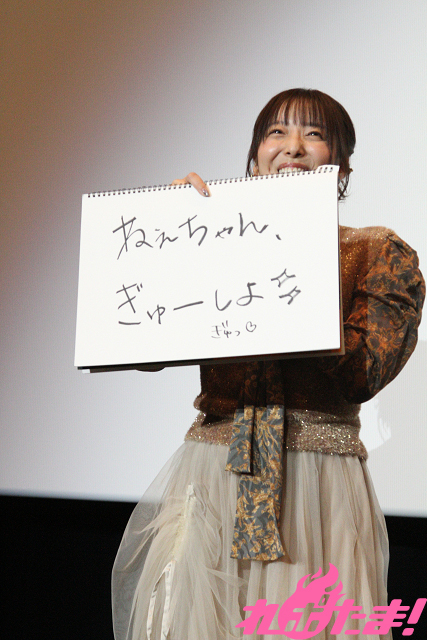 ねぇちゃん、
ぎゅーしよ
ぎゅっ♡
れポたま!